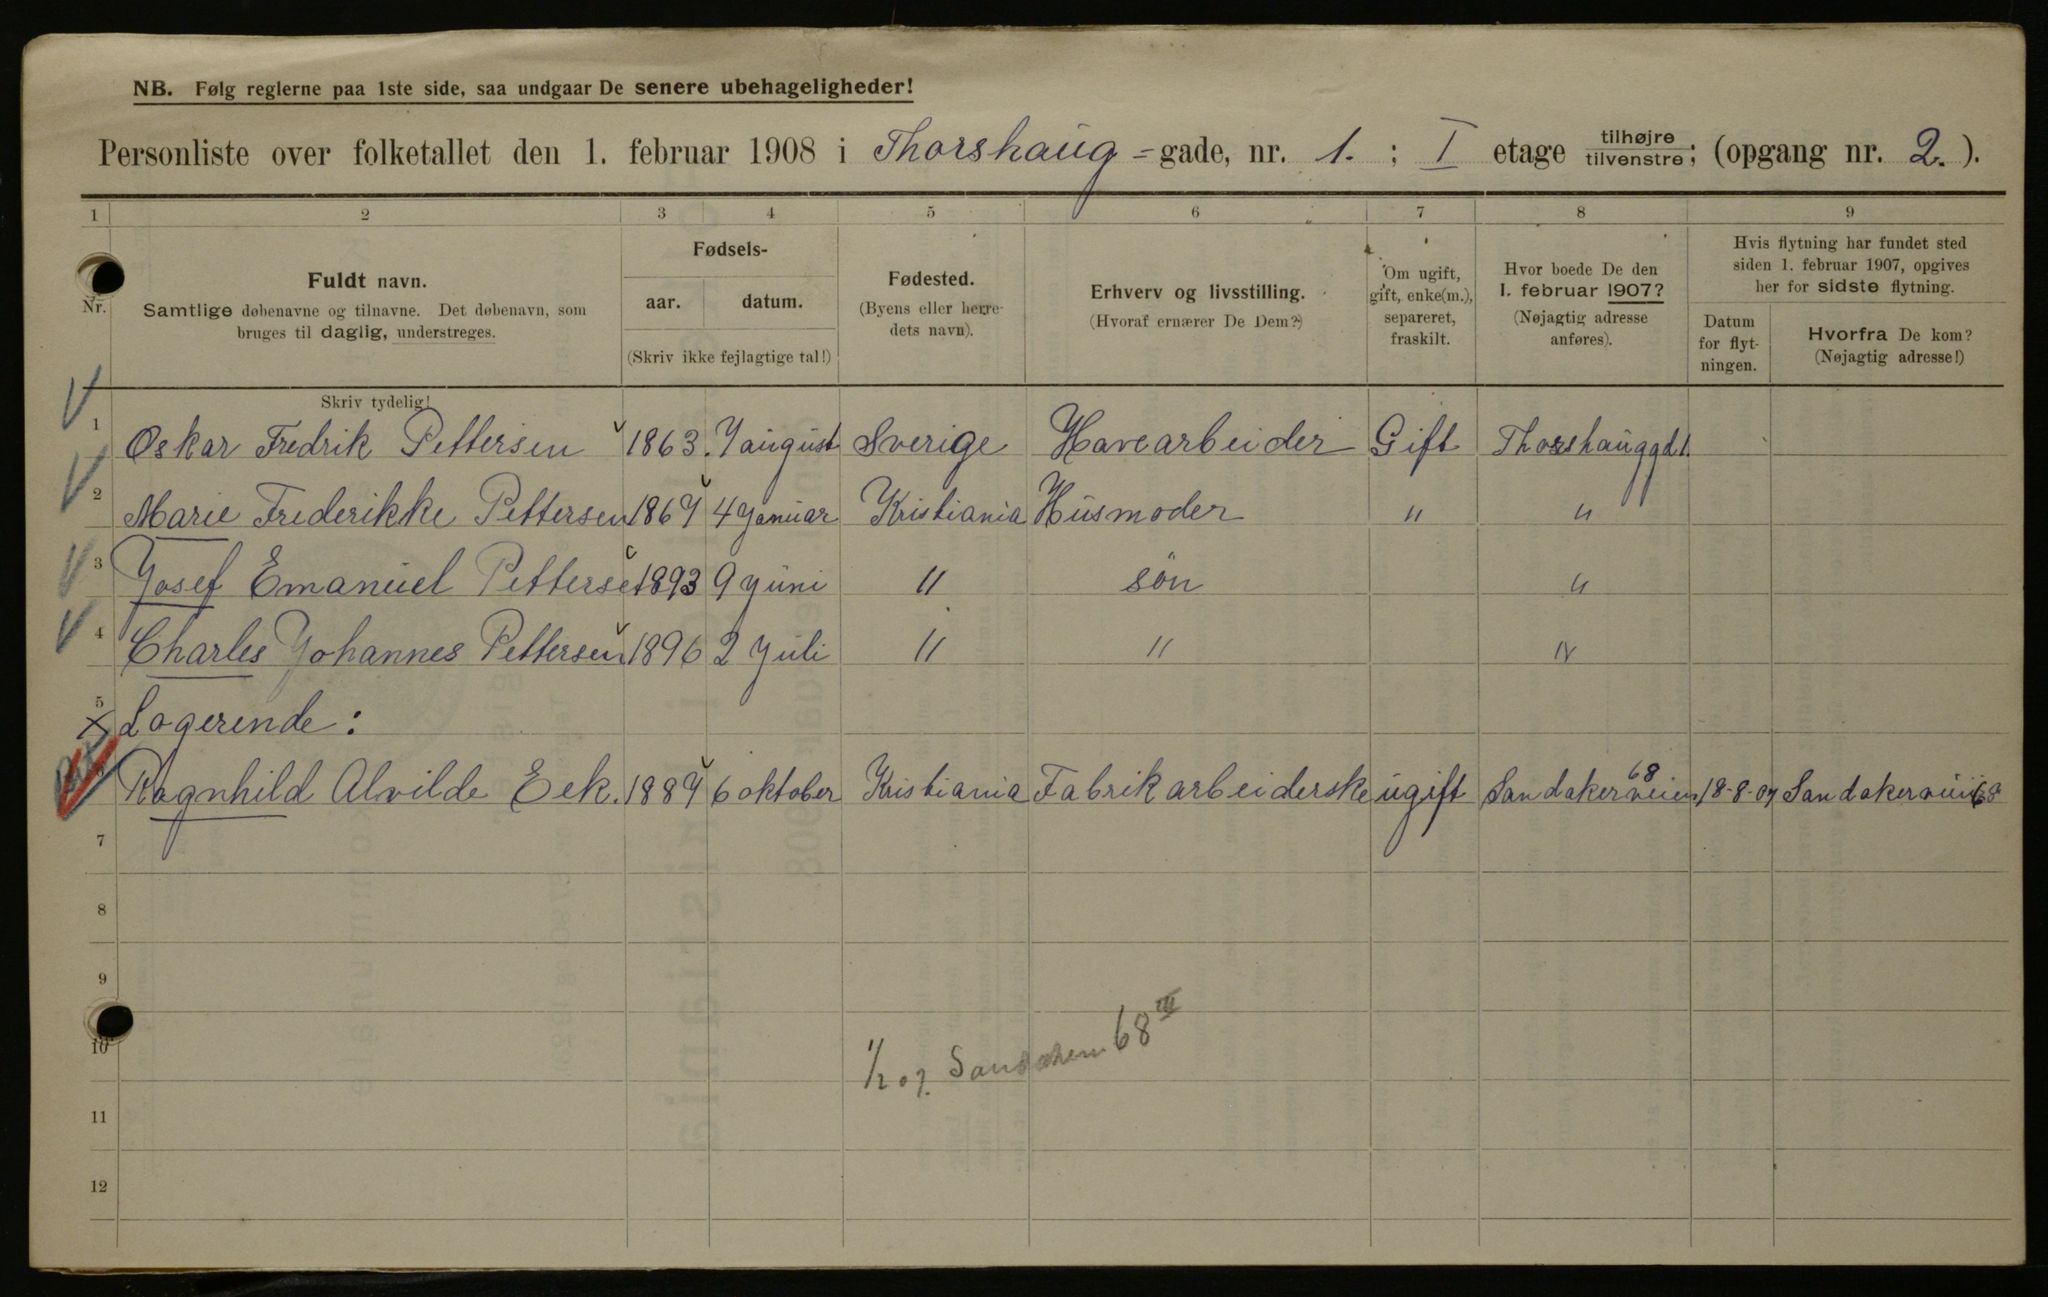 NB. Følg reglerne paa 1ste side, saa undgaar De senere ubehageligheder!
Personliste over folketallet den 1. februar 1908 i Thorshaug=gade, nr. 1. ; I etage tilhøjre tilvenstre; (opgang nr. 2.).
1 2 3 4 5 6 7 8 9
Nr.
Fuldt navn.
Samtlige døbenavne og tilnavne. Det døbenavn, som
bruges til daglig, understreges.
Fødsels-
aar. datum.
(Skriv ikke fejlagtige tal!)
Fødested.
(Byens eller herre-
dets navn).
Erhverv og livsstilling.
(Hvoraf ernærer De Dem?)
Om ugift,
gift, enke(m.),
separeret,
fraskilt.
Hvor boede De den
1. februar 1907?
(Nøjagtig adresse
anføres).
Hvis flytning har fundet sted
siden 1. februar 1907, opgives
her for sidste flytning.
Datum
for flyt-
ningen.
Hvorfra De kom?
(Nøjagtig adresse!)
Skriv tydelig!
1 Oskar Fredrik Pettersen 1863. 7 august Sverige Havearbeider Gift Thorshauggd 1.
2 Marie Frederikke Pettersen 1867 4 Januar Kristiania Husmoder " "
3 Josef Emanuel Petterse 1893 9 Juni " søn "
4 Charles Johannes Pettersen 1896 2 Juli " " "
5 Logerende:
6 Ragnhild Alvilde Eek. 1887 6 oktober Kristiania Fabrikarbeiderske ugift Sandakerveien 68 18-8-07 Sandakerveien 68
7
8
9
10
1/2 07. Sandakerv. 68 III
11
12